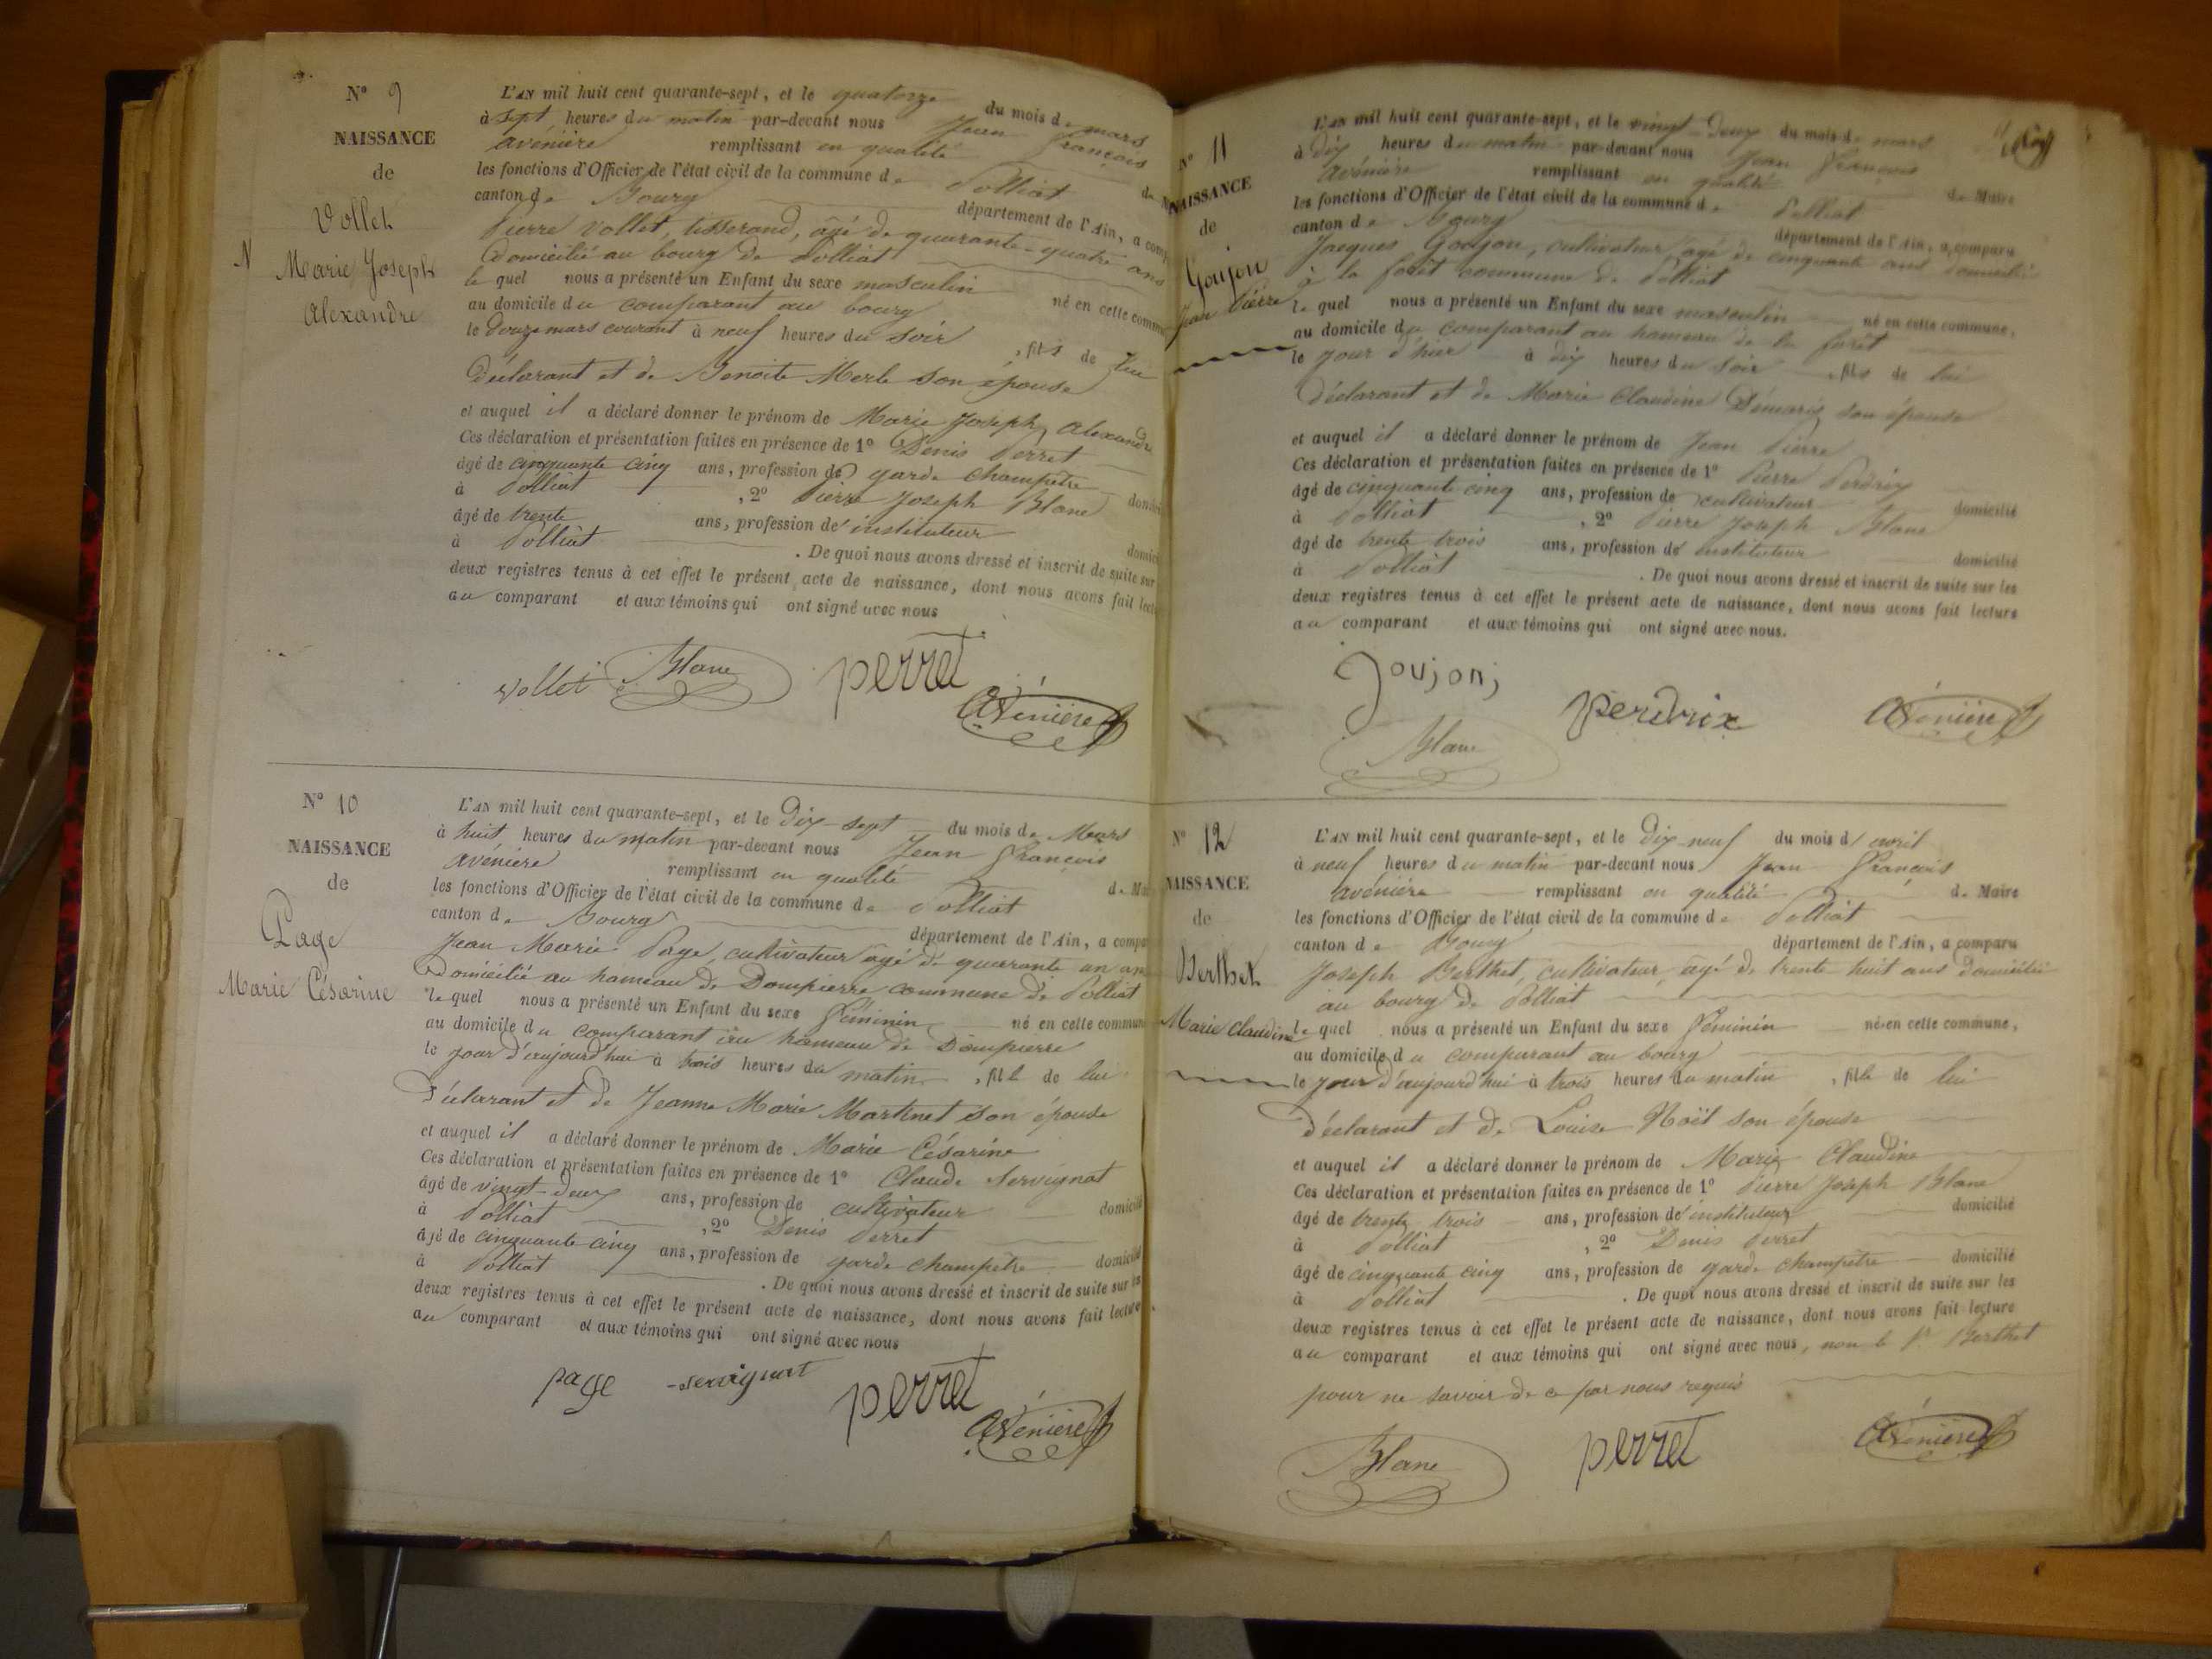 N° 9
NAISSANCE
de
Vollet
N
Marie Joseph
Alexandre
L'AN mil huit cent quarante-sept, et le quatorze du mois de mars
à sept heures du matin par-devant nous Jean François
avénière remplissant en qualité de
les fonctions d'Officier de l'état civil de la commune de Polliat
canton de Bourg département de l'Ain, a comp
Pierre Vollet, tisserand, âgé de quarante-quatre ans
domicilié au bourg de Polliat
le quel nous a présenté un Enfant du sexe masculin né en cette commu
au domicile du comparant au bourg
le douze mars courant à neuf heures du soir, fils de lui
Déclarant et de Benoite Merle son épouse
et auquel il a déclaré donner le prénom de Marie Joseph Alexandre
Ces déclaration et présentation faites en présence de 1° Denis Perret
âgé de cinquante cinq ans, profession de garde champêtre domici
à Polliat, 2° Pierre Joseph Blanc
âgé de trente ans, profession de instituteur domici
à Polliat. De quoi nous avons dressé et inscrit de suite sur
deux registres tenus à cet effet le présent acte de naissance, dont nous avons fait lect
au comparant et aux témoins qui ont signé avec nous
vollet Blanc perret Avénière
N° 10
NAISSANCE
de
Page
Marie Césarine
L'AN mil huit cent quarante-sept, et le dix-sept du mois de Mars
à huit heures du matin par-devant nous Jean François
avénière remplissant en qualité de Mai
les fonctions d'Officier de l'état civil de la commune de Polliat
canton de Bourg département de l'Ain, a compa
Jean Marie Page, cultivateur âgé de quarante un an
domicilié au hameau de Dompierre commune de Polliat
le quel nous a présenté un Enfant du sexe féminin né en cette commun
au domicile du comparant au hameau de Dompierre
le jour d'aujourd'hui à trois heures du matin, fille de lui
Déclarant et de Jeanne Marie Martinet son épouse
et auquel il a déclaré donner le prénom de Marie Césarine
Ces déclaration et présentation faites en présence de 1° Claude Servignat
âgé de vingt-deux ans, profession de cultivateur domicilié
à Polliat, 2° Denis Perret
âgé de cinquante cinq ans, profession de garde champêtre domicilié
à Polliat. De quoi nous avons dressé et inscrit de suite sur les
deux registres tenus à cet effet le présent acte de naissance, dont nous avons fait lecture
au comparant et aux témoins qui ont signé avec nous
page servignat perret Avénière
N° 11
NAISSANCE
de
Goujon
Jean Pierre
L'AN mil huit cent quarante-sept, et le vingt-deux du mois de mars
à dix heures du matin par-devant nous Jean François
avénière remplissant en qualité de Maire
les fonctions d'Officier de l'état civil de la commune de Polliat
canton de Bourg département de l'Ain, a comparu
Jacques Goujon, cultivateur âgé de cinquante ans domicilié
à la forêt commune de Polliat
le quel nous a présenté un Enfant du sexe masculin né en cette commune,
au domicile du comparant au hameau de la forêt
le jour d'hier à dix heures du soir, fils de lui
Déclarant et de Marie Claudine Démaris son épouse
et auquel il a déclaré donner le prénom de Jean Pierre
Ces déclaration et présentation faites en présence de 1° Pierre Perdrix
âgé de cinquante cinq ans, profession de cultivateur domicilié
à Polliat, 2° Pierre Joseph Blanc
âgé de trente trois ans, profession de instituteur domicilié
à Polliat. De quoi nous avons dressé et inscrit de suite sur les
deux registres tenus à cet effet le présent acte de naissance, dont nous avons fait lecture
au comparant et aux témoins qui ont signé avec nous.
goujon perdrix Avénière
Blanc
N° 12
NAISSANCE
de
Berthet
Marie Claudine
L'AN mil huit cent quarante-sept, et le dix neuf du mois d'avril
à neuf heures du matin par-devant nous Jean François
avénière remplissant en qualité de Maire
les fonctions d'Officier de l'état civil de la commune de Polliat
canton de Bourg département de l'Ain, a comparu
Joseph Berthet, cultivateur, âgé de trente huit ans domicilié
au bourg de Polliat
le quel nous a présenté un Enfant du sexe féminin né en cette commune,
au domicile du comparant au bourg
le jour d'aujourd'hui à trois heures du matin, fille de lui
Déclarant et de Louise Noël son épouse
et auquel il a déclaré donner le prénom de Marie Claudine
Ces déclaration et présentation faites en présence de 1° Pierre Joseph Blanc
âgé de trente trois ans, profession de instituteur domicilié
à Polliat, 2° Denis Perret
âgé de cinquante cinq ans, profession de garde champêtre domicilié
à Polliat. De quoi nous avons dressé et inscrit de suite sur les
deux registres tenus à cet effet le présent acte de naissance, dont nous avons fait lecture
au comparant et aux témoins qui ont signé avec nous, non le Sr Berthet
pour ne savoir de ce par nous requis
Blanc perret Avénière